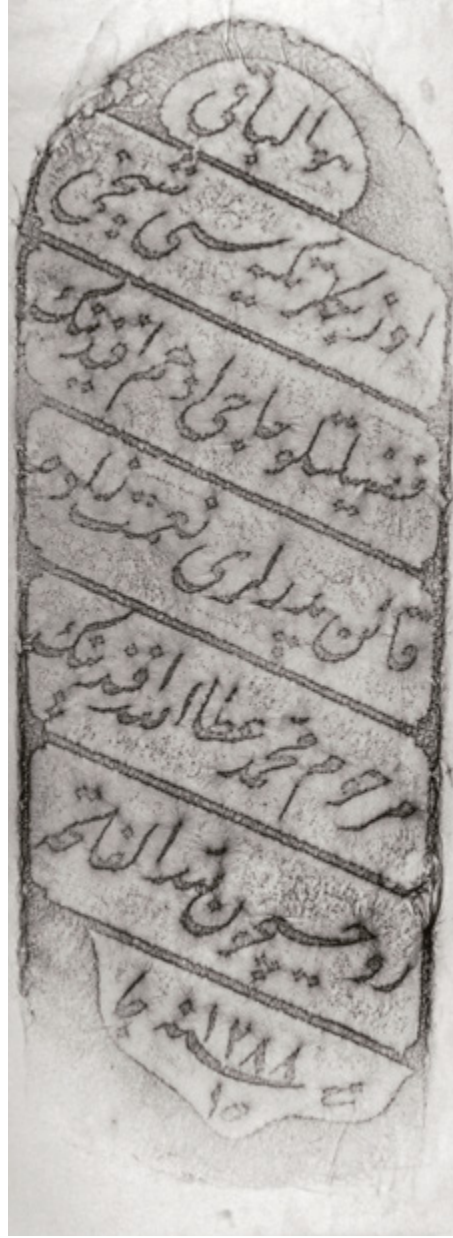 هوالباقی
اوزبکلر تکیه سی شیخی
فضیلتلو حاجی ادهم افندینک
قائن پدرلری نعمت زاده
مرحوم محمد عطاالله افندینک
روحیچون لله الفاتحه
سنه ١٢٨٨ جا
فی ١٥